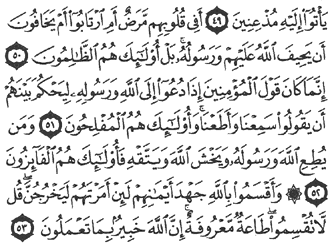 يَأْتُوٓا۟ إِلَيْهِ مُذْعِنِينَ ٤٩ أَفِى قُلُوبِهِم مَّرَضٌ أَمِ ٱرْتَابُوٓا۟ أَمْ يَخَافُونَ
أَن يَحِيفَ ٱللَّهُ عَلَيْهِمْ وَرَسُولُهُۥ ۚ بَلْ أُو۟لَـٰٓئِكَ هُمُ ٱلظَّـٰلِمُونَ ٥٠
إِنَّمَا كَانَ قَوْلَ ٱلْمُؤْمِنِينَ إِذَا دُعُوٓا۟ إِلَى ٱللَّهِ وَرَسُولِهِۦ لِيَحْكُمَ بَيْنَهُمْ
أَن يَقُولُوا۟ سَمِعْنَا وَأَطَعْنَا ۚ وَأُو۟لَـٰٓئِكَ هُمُ ٱلْمُفْلِحُونَ ٥١ وَمَن
يُطِعِ ٱللَّهَ وَرَسُولَهُۥ وَيَخْشَ ٱللَّهَ وَيَتَّقْهِ فَأُو۟لَـٰٓئِكَ هُمُ ٱلْفَآئِزُونَ
٥٢ ۞ وَأَقْسَمُوا۟ بِٱللَّهِ جَهْدَ أَيْمَـٰنِهِمْ لَئِنْ أَمَرْتَهُمْ لَيَخْرُجُنَّ ۖ قُل
لَّا تُقْسِمُوا۟ ۖ طَاعَةٌ مَّعْرُوفَةٌ ۚ إِنَّ ٱللَّهَ خَبِيرٌۢ بِمَا تَعْمَلُونَ ٥٣